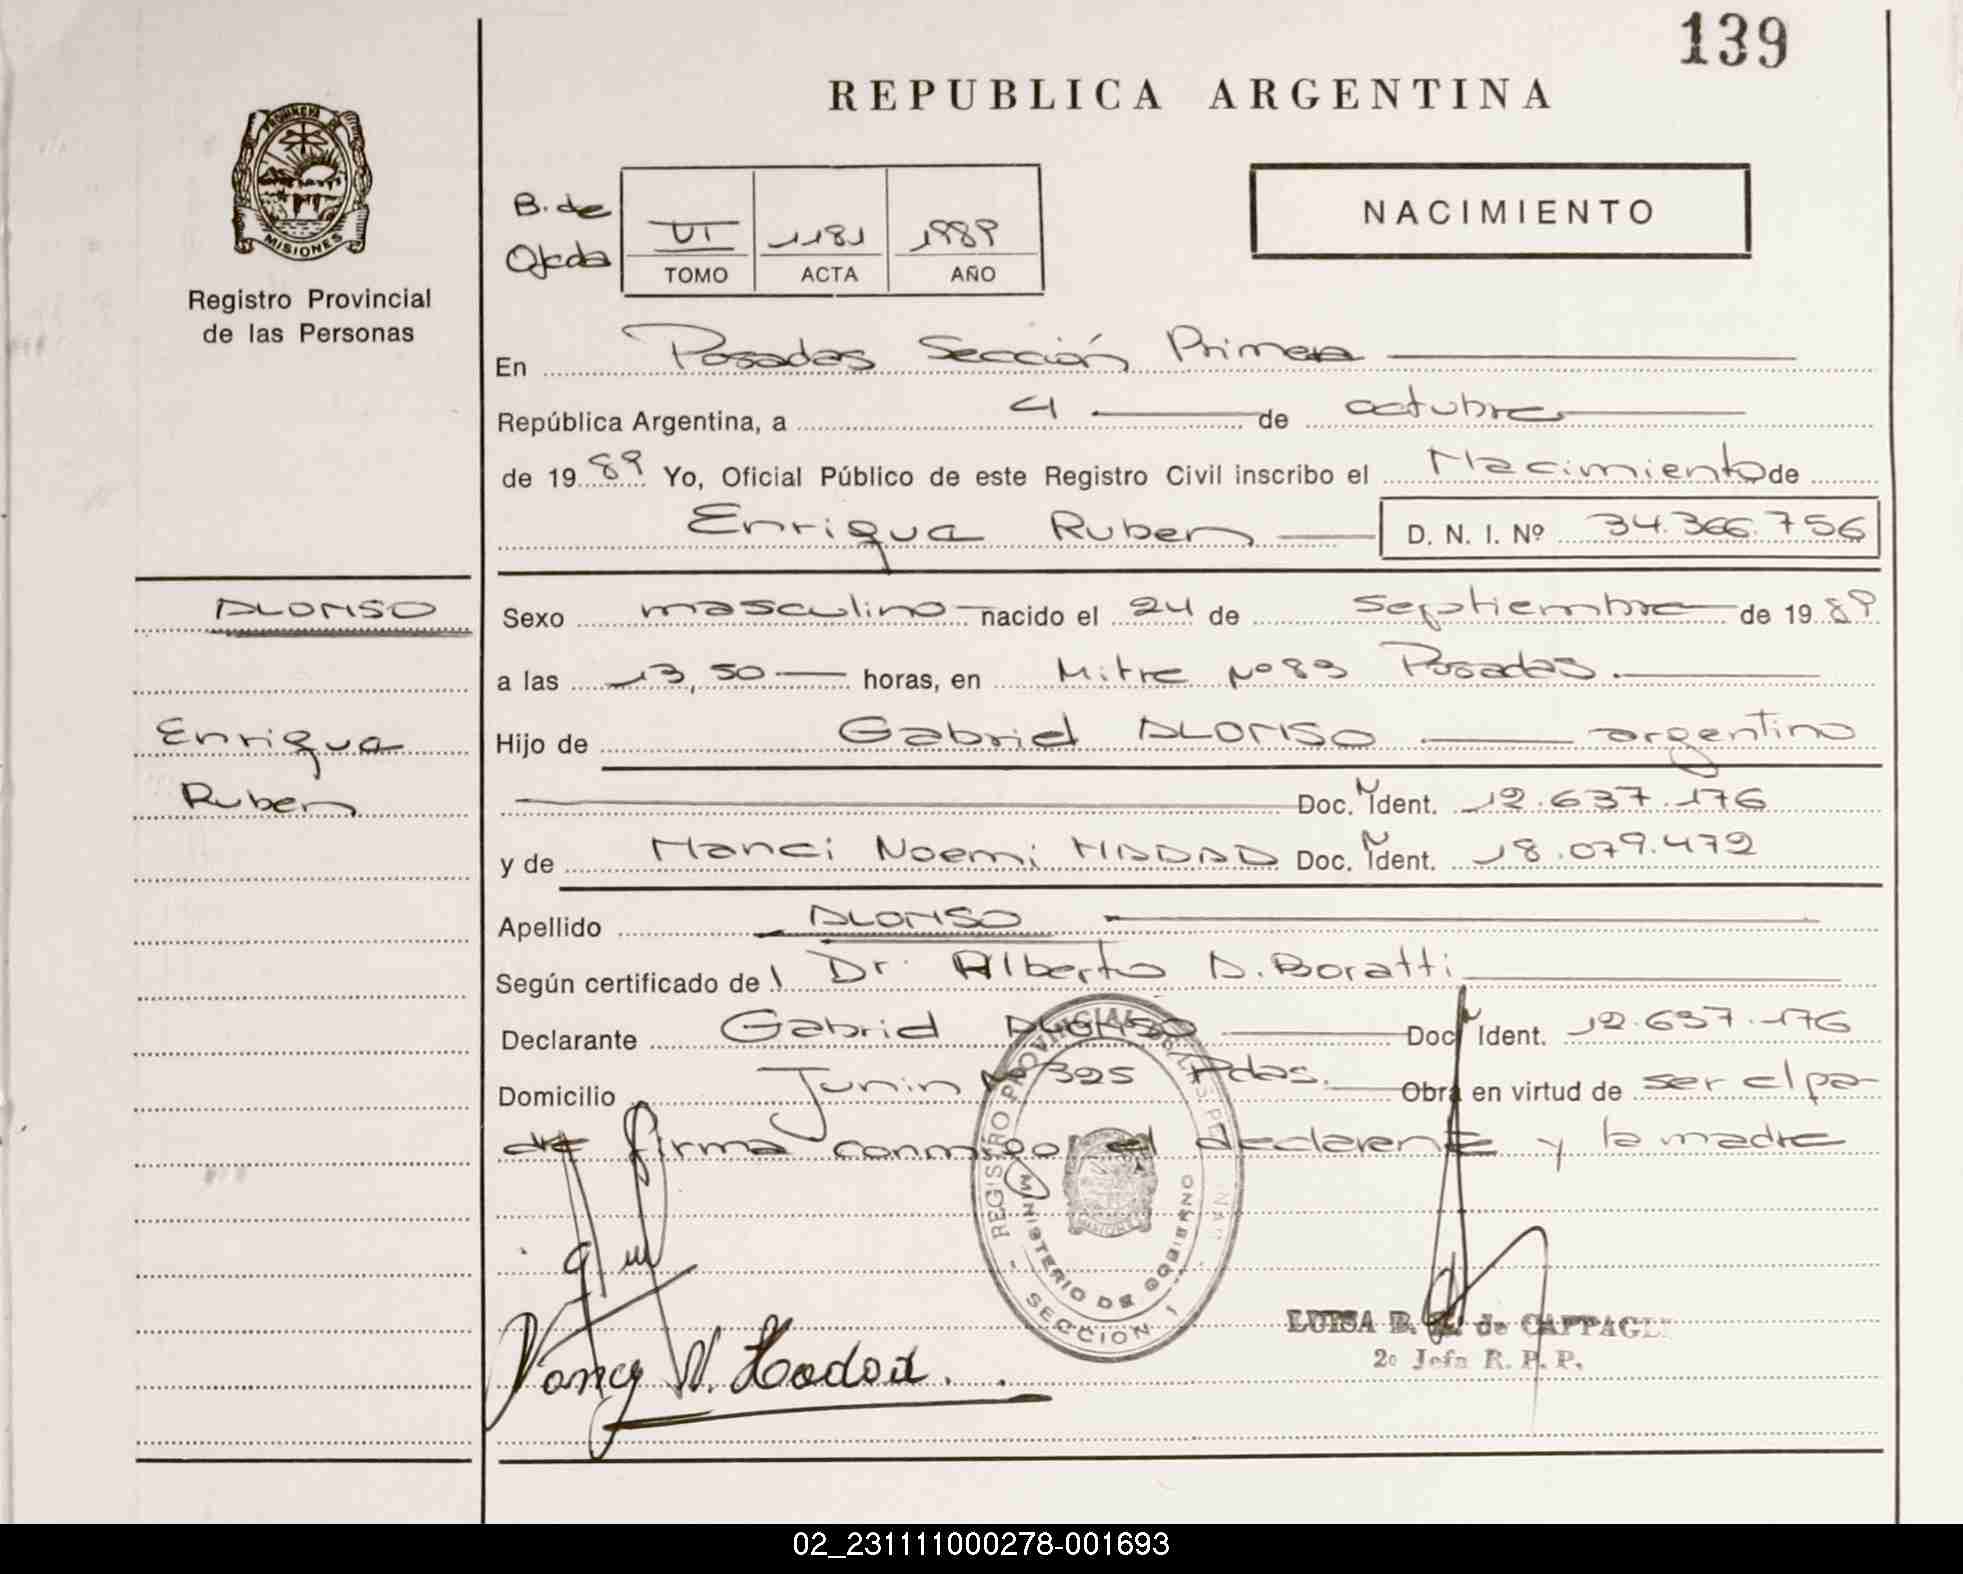 139
REPUBLICA ARGENTINA
PROVINCIA DE
MISIONES
Registro Provincial
de las Personas
B. de
Ojeda
VI 1181 1989
TOMO ACTA AÑO
NACIMIENTO
En Posadas Sección Primera
República Argentina, a 4 de octubre
de 1989 Yo, Oficial Público de este Registro Civil inscribo el Nacimiento de
Enrique Ruben D. N. I. Nº 34.366.756
ALONSO
Sexo masculino nacido el 24 de septiembre de 1989
a las 13,50 horas, en Mitre Nº 83 Posadas.
Enrique
Ruben
Hijo de Gabriel ALONSO argentino
Doc. N Ident. 12.637.176
y de Nanci Noemi HADAD Doc. N Ident. 18.079.472
Apellido ALONSO
Según certificado de l Dr. Alberto A. Boratti
Declarante Gabriel ALONSO Doc. N Ident. 12.637.176
Domicilio Junin Nº 325 Pdas. Obra en virtud de ser el pa-
dre firma conmigo el declarante y la madre
REGISTRO PROVINCIAL DE LAS PERSONAS
MINISTERIO DE GOBIERNO
SECCION 1
Nancy N. Hadad.
LUISA B. de CAPPAGLI
2º Jefa R. P. P.
02_231111000278-001693